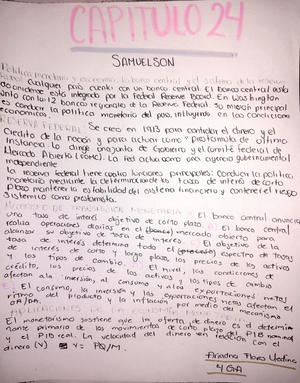 CAPITULO 24
SAMUELSON
Política monetaria y economía. La banca central y el sistema de la reserva
Cualquier país cuenta con un banco central. El banco central
estadounidense está integrado por la Federal Reserve Board. En Washington
junto con los 12 bancos regionales de la Reserva Federal. Su misión principal
es conducir la política monetaria del país, influyendo en las condiciones
económicas.
RESERVA FEDERAL Se creo en 1913 para controlar el dinero y el
Crédito de la nación para actuar como "prestamista de última
Instancia. Lo dirige una junta de Gobierno y el comité federal de
Mercado Abierto (FOMC). La Fed actúa como una agencia gubernamental
independiente
La reserva federal tiene cuatro funciones principales: Conducir la política
monetaria mediante la determinación de tasas de interés de corto
Plazo mantener la estabilidad del sistema financiero y contener el riesgo
Sistemico como prestamista.
MECANISMO DE TRANSMISIÓN MONETARIA El banco central anuncia
Una tasa de interés objetivo de corto plazo. El banco central
realiza operaciones diarias en el mercado abierto para
alcanzar su objetivo de tasa de interés. El objetivo de la
tasa de interés determina todo el espectro de tasas
de interés de corto y largo plazo, los precios de los activos
y los tipos de cambio. El nivel, las condiciones de
crédito, los precios de los activos y los tipos de cambio
afectan a la inversión, al consumo y a las exportaciones netas
El consumo, la inversión y las exportaciones netas afectan el
ritmo del producto y la inflación por medio del mecanismo
OA/DA.
APLICACIONES DE LA ECONOMÍA MONETARIA
El monetarismo sostiene que la oferta de dinero es el determi-
nante primario de los movimientos de corto plazo del PIB nominal
y el PIB real. La velocidad del dinero en relación con el
dinero (V) V = PQ/M
Ariadna Flores Medina